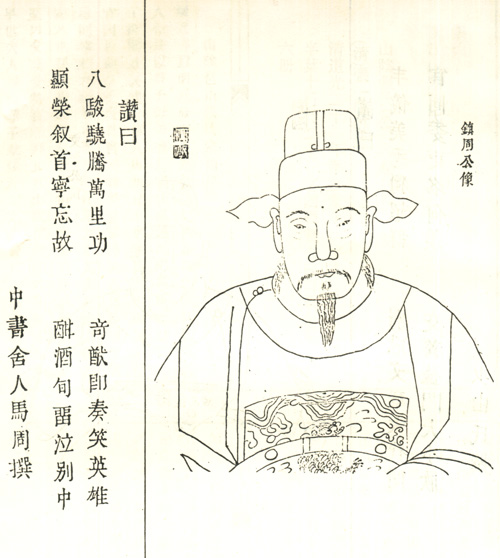 鎮周公像
讚曰
八駿驍騰萬里功　竒猷即奏笑英雄
顯榮叙首寧忘故　酣酒旬畱泣别中
中書舍人馬周撰